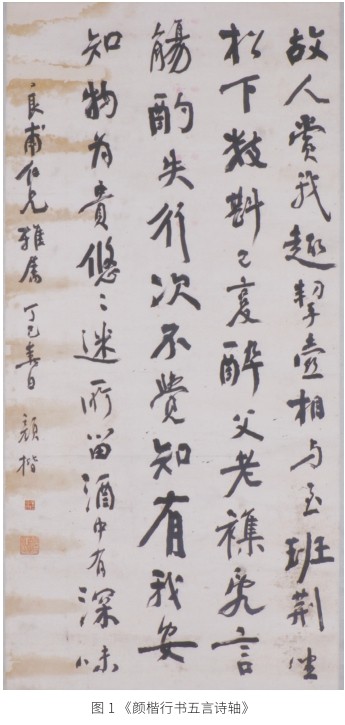 故人賞我趣挈壺相与至班荆坐
松下數斟已复醉父老襍乱言
觴酌失行次不覺知有我安
知物为貴悠〻迷所留酒中有深味
良甫仁兄雅属 丁巳春日 顏楷
图 1 《颜楷行书五言诗轴》